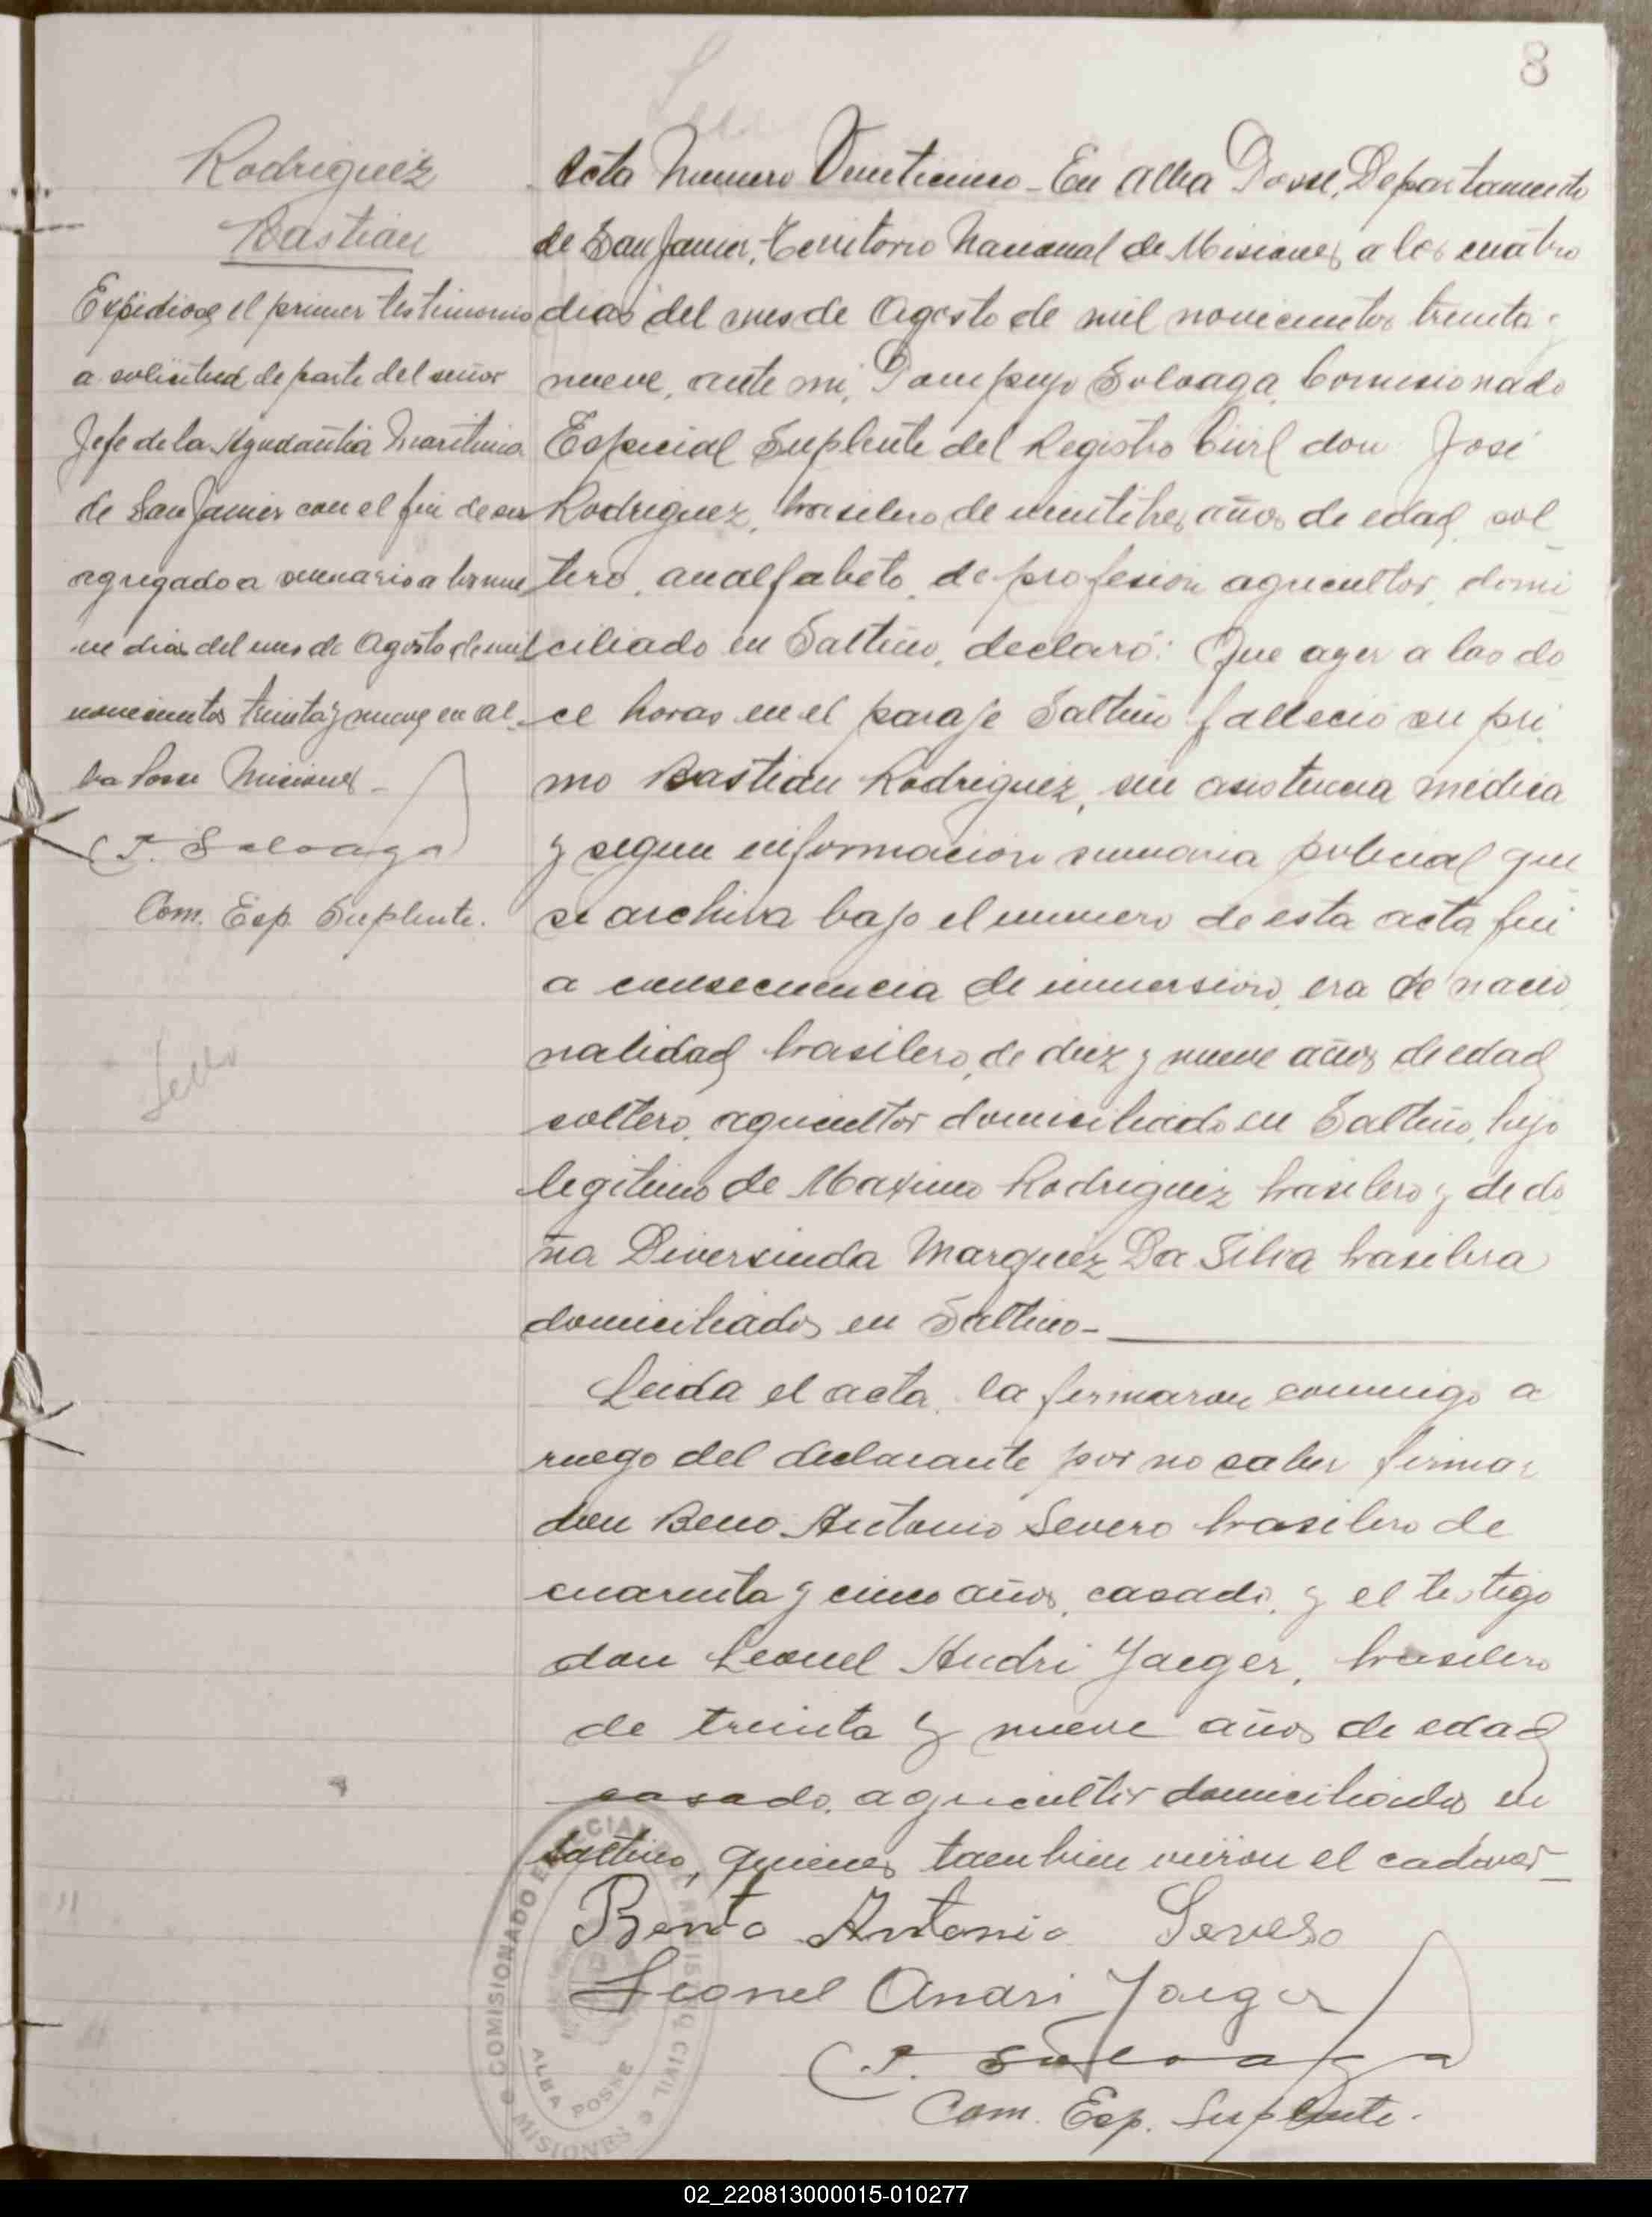 8
Rodriguez
Bastian
Expidiose el primer testimonio
a solicitud de parte del señor
Jefe de la Ayudantia Maritima
de San Javier con el fin de ser
agregado a sumario a los nue
ve dias del mes de Agosto de mil
novecientos treinta y nueve en Al
ba Posse Misiones -
P. Soloaga
Com. Esp. Suplente.
Sello
Acta Numero Veinticinco - En Alba Posse, Departamento
de San Javier, Territorio Nacional de Misiones, a los cuatro
dias del mes de Agosto de mil novecientos treinta y
nueve, ante mi, Pompeyo Soloaga, Comisionado
Especial Suplente del Registro Civil don José
Rodriguez, brasilero de veintitres años de edad, sol
tero, analfabeto, de profesion agricultor, domi
ciliado en Saltino, declaró: Que ayer a las do
ce horas en el paraje Saltino falleció su pri
mo Bastian Rodriguez, sin asistencia médica
y segun informacion sumaria policial que
se archiva bajo el numero de esta acta fué
a consecuencia de inmersion, era de nacio
nalidad brasilero, de diez y nueve años de edad
soltero, agricultor domiciliado en Saltino, hijo
legitimo de Maximo Rodriguez brasilero y de do
ña Diversinda Marquez Da Silva brasilera
domiciliados en Saltino -
Leida el acta, la firmaron conmigo a
ruego del declarante por no saber firmar
don Beno Antonio Severo brasilero de
cuarenta y cinco años, casado, y el testigo
don Leonel Andri Jaeger, brasilero
de treinta y nueve años de edad
casado, agricultor domiciliados en
Saltino, quienes tambien vieron el cadaver -
Bento Antonio Severo
Leonel Andri Jaeger
P. Soloaga
Com. Esp. Suplente.
COMISIONADO ESPECIAL DEL REGISTRO CIVIL
ALBA POSSE
MISIONES
02_220813000015-010277